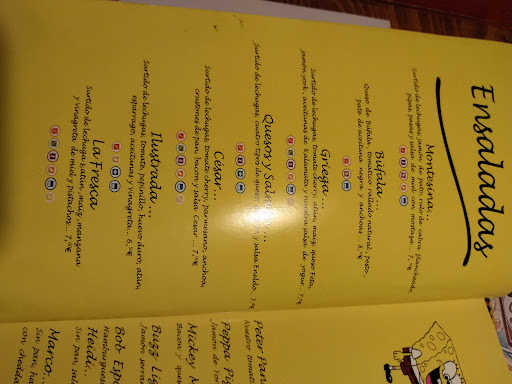 Ensaladas
Montesina...
Surtido de lechugas, jamón de pato, rulo de cabra plancheado,
pipas, pasas y salsa de miel con mostaza ... 7,
Búfala...
Queso de Búfala, tomatico rallado natural, pesto,
pate de aceituna negra y anchoas ... 8,
Griega ...
Surtido de lechugas, tomate cherry, atún, maíz, queso Feta,
jamón york, aceitunas de Kalamata y nuestra salsa de yogur ... 7,
Quesos y
Surtido de lechugas, cuatro tipos de queso, y salsa Eneldo.. 7,
César ...
Surtido de lechugas, tomate cherry, parmesano, anchoa,
crustones de pan, bacon y salsa César ... 7,
Ilustrada ...
Surtido de lechugas, tomate, pepinillo, huevo duro, atún,
esparrago, aceitunas y vinagreta...
La Fresca
Surtido de lechuga, patún, maíz, manzana
y vinagreta de miel y pistachos...
Peter Pan
Nuestro tomate
Peppa Pig
Jamón de York
Mickey M
Bacon y que
Buzz Lig
Jamón serran
Bob Esp
Hamburgues
Heidi..
Sin pan, sal
Marco...
Sin pan, ha
con chedda